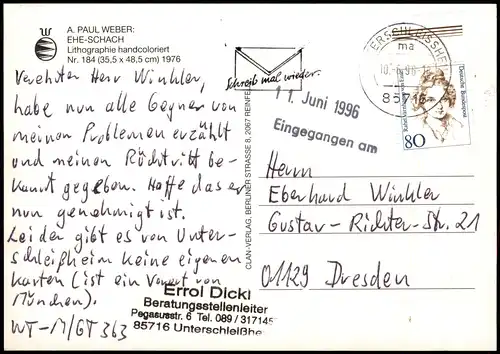 A. PAUL WEBER:
EHE-SCHACH
Lithographie handcoloriert
Nr. 184 (35,5 x 48,5 cm) 1976
Verehrter Herr Winkler,
habe nun alle Gegner von
meinen Problemen erzählt
und meinen Rücktritt be-
kannt gegeben. Hoffe das er
nun genehmigt ist.
Leider gibt es von Unter-
schleißheim keine eigenen
Karten (ist ein Vorort von
München).
WT-M/GT 363
CLAN-VERLAG, BERLINER STRASSE 8, 2067 REINFE
Schreib mal wieder.
ERSCHLEISSHE
ma
85716
Deutsche Bundespost
80
11. Juni 1996
Eingegangen am
Herrn
Eberhard Winkler
Gustav-Richter-Str. 21
01129 Dresden
Errol Dickl
Beratungsstellenleiter
Pegasusstr. 6 Tel. 089 / 317145
85716 Unterschleißhe